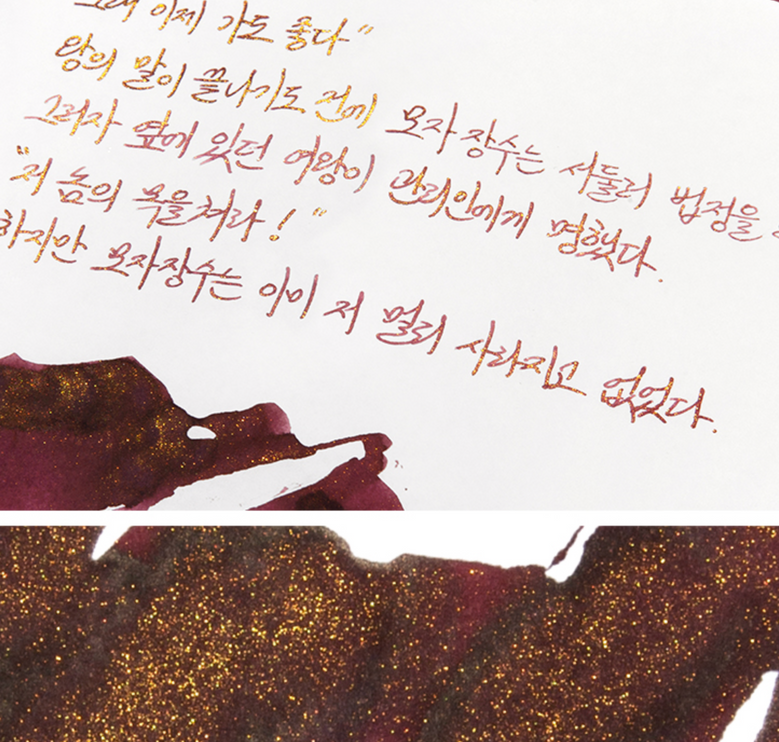 이제 가도 좋다”
왕의 말이 끝나기도 전에 모자 장수는 서둘러 법정을
그러자 옆에 있던 여왕이 관리인에게 명했다.
“저 놈의 목을 쳐라!”
하지만 모자장수는 이미 저 멀리 사라지고 없었다.